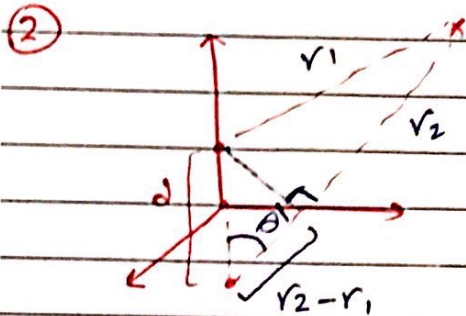 2
x
r1
r2
d
θ
r2-r1